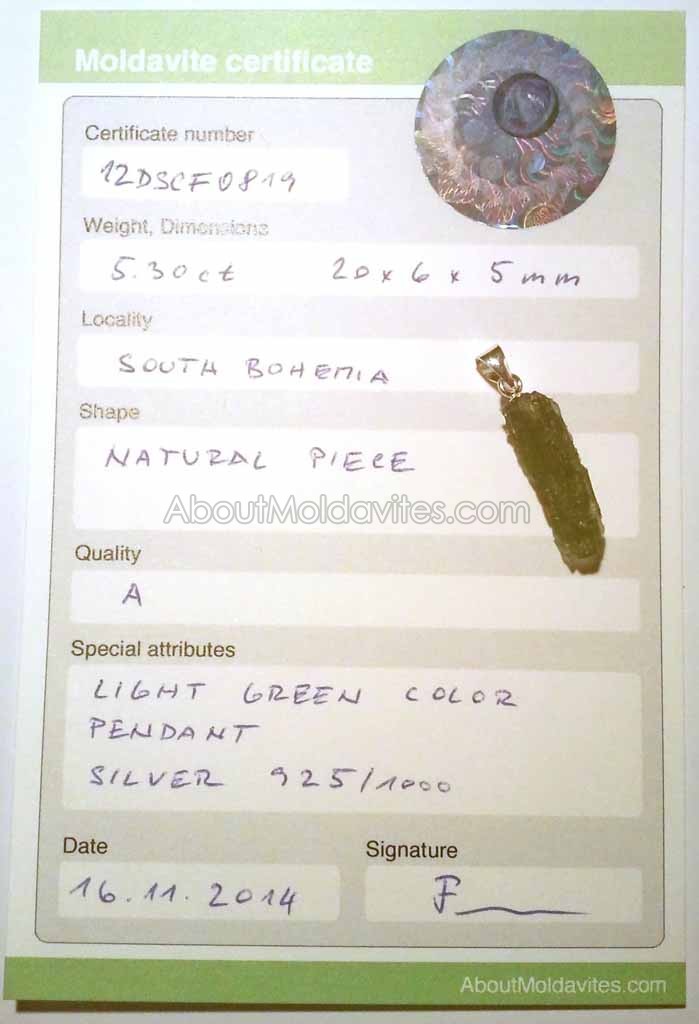 Moldavite certificate
Certificate number
12DSCF0819
Weight, Dimensions
5.30ct 20 x 6 x 5mm
Locality
SOUTH BOHEMIA
Shape
NATURAL PIECE
AboutMoldavites.com
Quality
A
Special attributes
LIGHT GREEN COLOR
PENDANT
SILVER 925/1000
Date
Signature
16.11.2014
AboutMoldavites.com